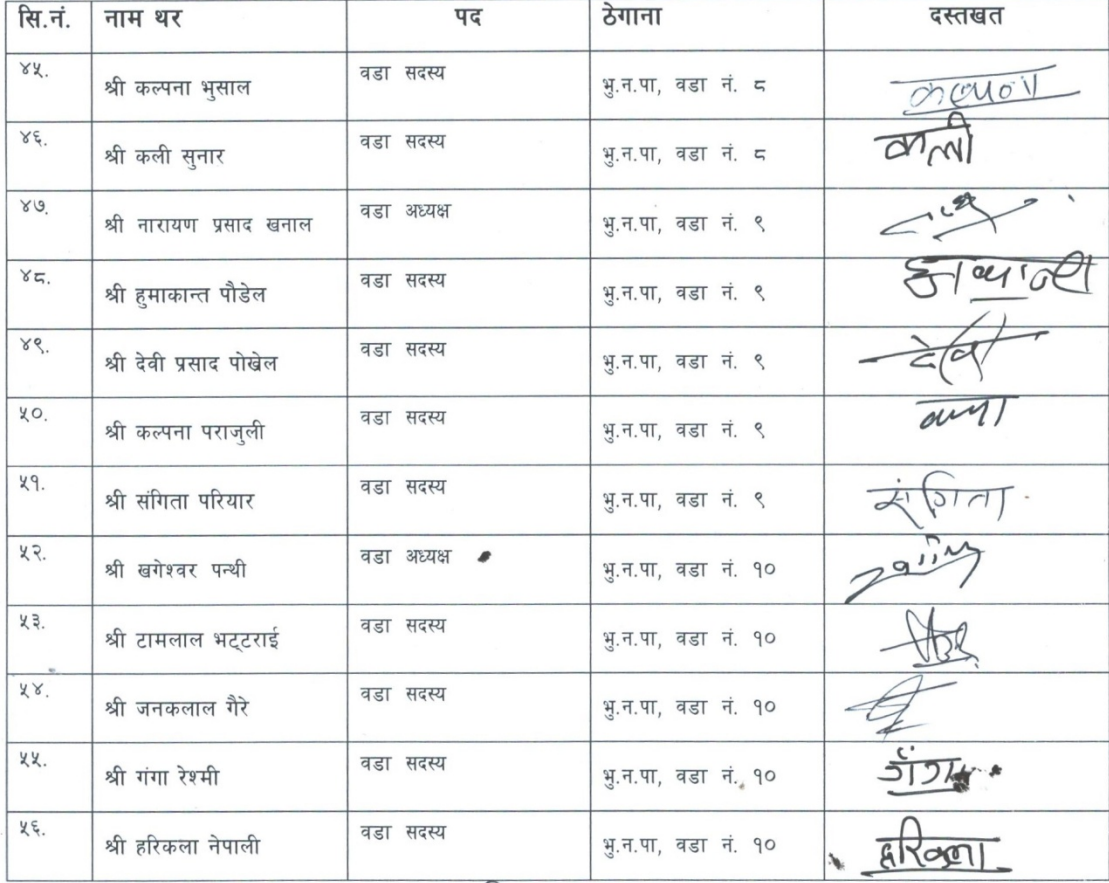 सि.नं. नाम थर पद ठेगाना दस्तखत
४५. श्री कल्पना भुसाल वडा सदस्य भु.न.पा, वडा नं. ८ कल्पना
४६. श्री कली सुनार वडा सदस्य भु.न.पा, वडा नं. ८ कली
४७. श्री नारायण प्रसाद खनाल वडा अध्यक्ष भु.न.पा, वडा नं. ९
४८. श्री हुमाकान्त पौडेल वडा सदस्य भु.न.पा, वडा नं. ९
४९. श्री देवी प्रसाद पोखेल वडा सदस्य भु.न.पा, वडा नं. ९ देवी
५०. श्री कल्पना पराजुली वडा सदस्य भु.न.पा, वडा नं. ९
५१. श्री संगिता परियार वडा सदस्य भु.न.पा, वडा नं. ९ संगिता
५२. श्री खगेश्वर पन्थी वडा अध्यक्ष भु.न.पा, वडा नं. १०
५३. श्री टामलाल भट्टराई वडा सदस्य भु.न.पा, वडा नं. १०
५४. श्री जनकलाल गैरे वडा सदस्य भु.न.पा, वडा नं. १०
५५. श्री गंगा रेश्मी वडा सदस्य भु.न.पा, वडा नं. १० गंगा
५६. श्री हरिकला नेपाली वडा सदस्य भु.न.पा, वडा नं. १० हरिकला